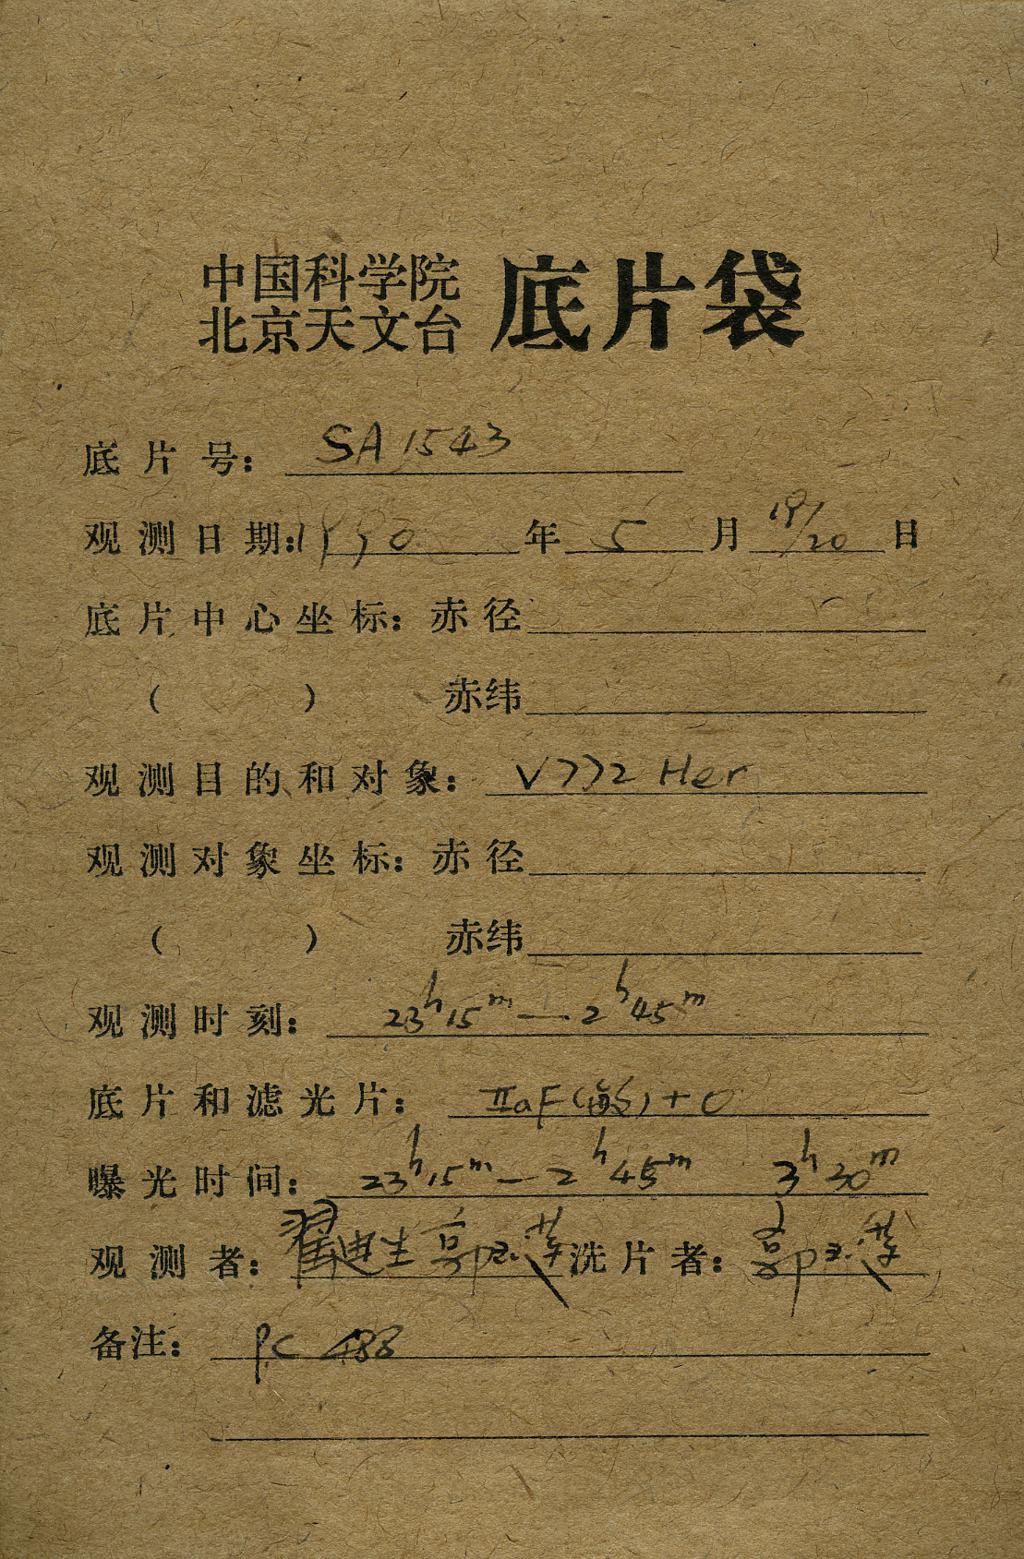 中国科学院
北京天文台 底片袋
底片号: SA1543
观测日期: 1990年5月19/20日
底片中心坐标: 赤径
( ) 赤纬
观测目的和对象: V772 Her
观测对象坐标: 赤径
( ) 赤纬
观测时刻: 23h15m—2h45m
底片和滤光片: IIaF(敏)+O
曝光时间: 23h15m—2h45m 3h30m
观测者: 翟迪生 郭玉莲 洗片者: 郭玉莲
备注: PC 488